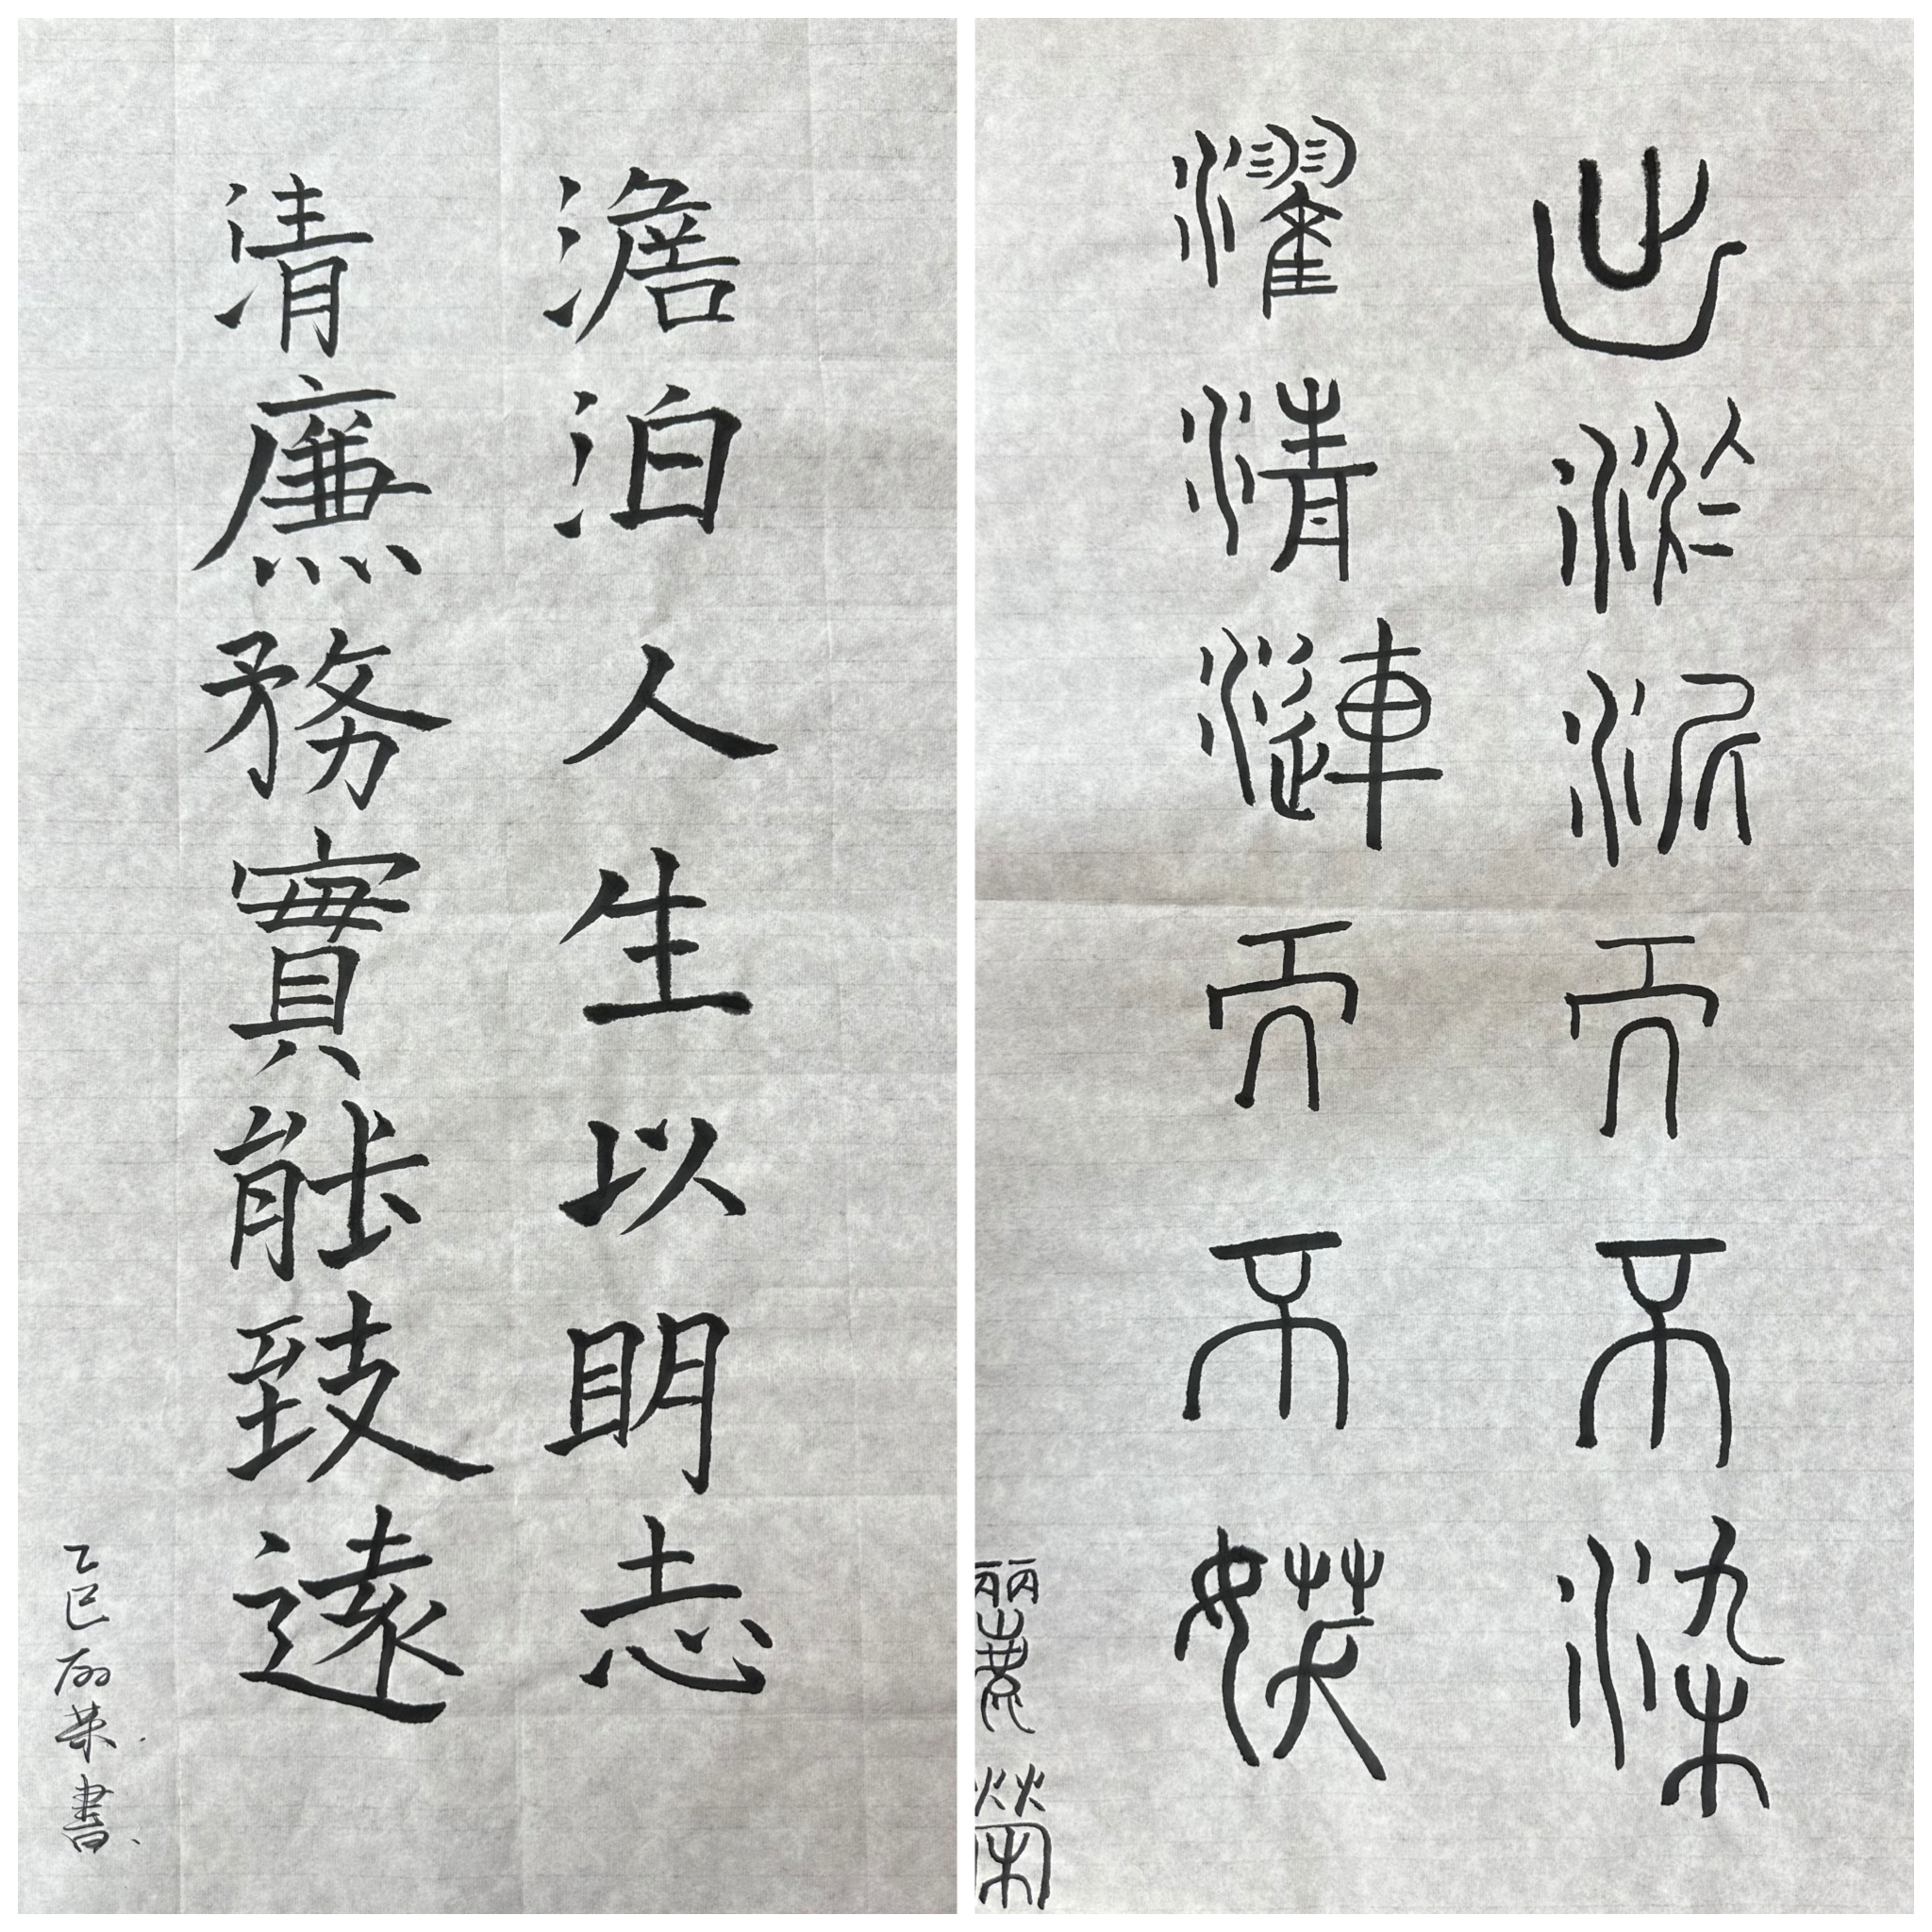 澹泊人生以明志
清廉務實能致遠
乙巳丽荣書
出淤泥而不染
濯清漣而不妖
麗榮